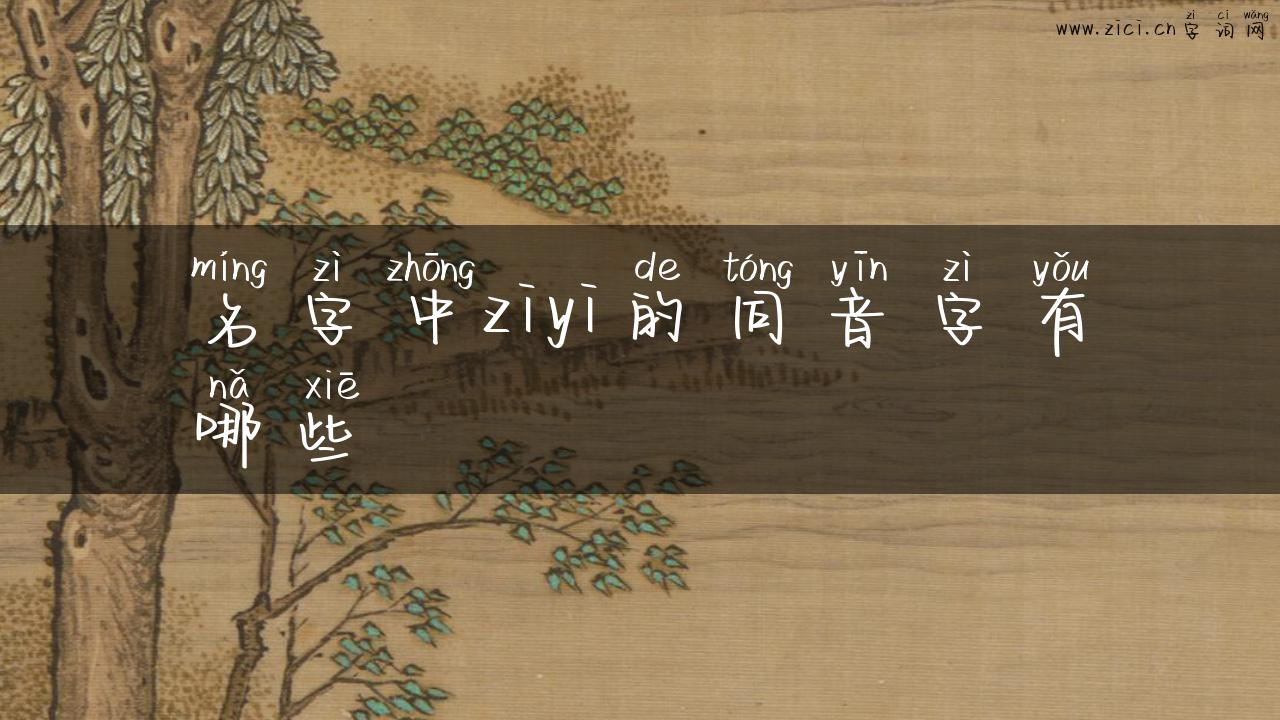 zì cí wǎng
www.zici.cn 字词网
míng zì zhōng de tóng yīn zì yǒu
名字中ziyi的同音字有
nǎ xiē
哪些